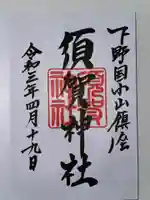 下野国小山鎮座
須賀神社
令和三年四月十九日